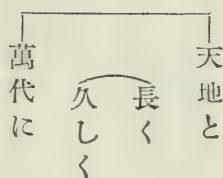 天地と
長く
久しく
萬代に